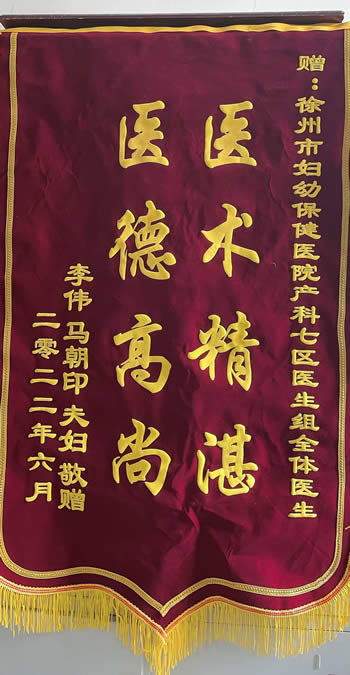 赠：徐州市妇幼保健医院产科七区医生组全体医生
医术精湛
医德高尚
李伟马朝印夫妇敬赠
二零二二年六月